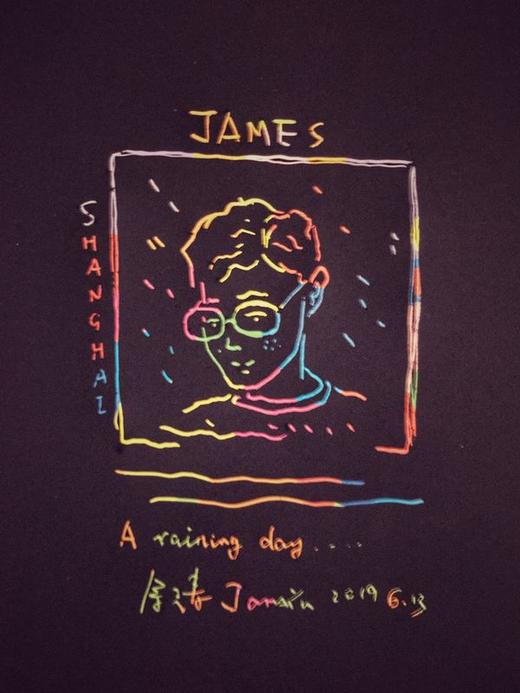 JAMES
SHANGHAI
A raining day....
2019 6.13